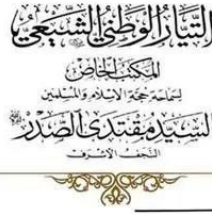 التيار الوطني الشيعي
المكتب الخاص
لسماحة حجة الاسلام والمسلمين
السيد مقتدى الصدر
النجف الاشرف